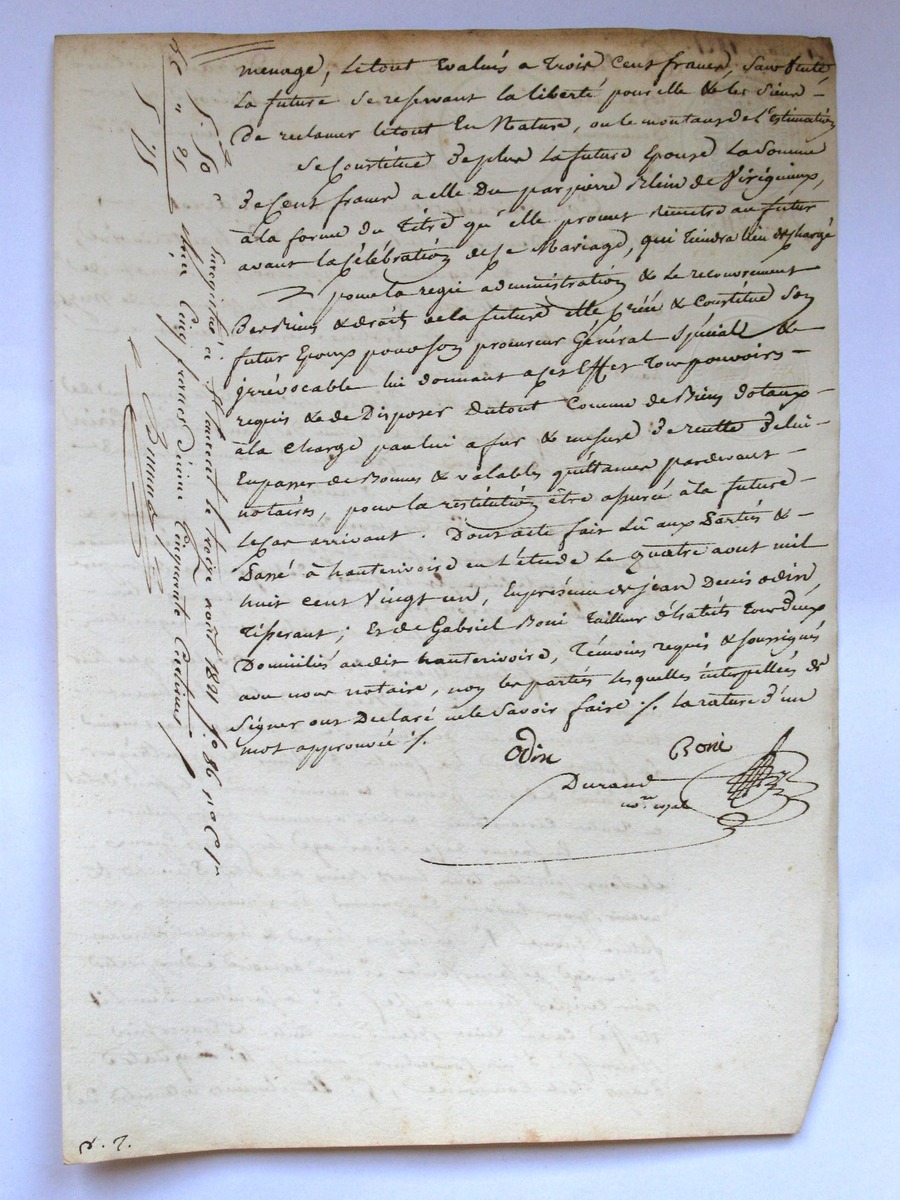 menage, le tout Evalués a Trois Cent francs, sauf
La future se reservant la liberté pour elle & les siens -
De reclamer le tout En Nature, ou le montant de l'estimation
Se Constitue De plus La future Epouse La Somme
De Cent francs a elle Du par pierre de Viriguieux,
à la forme du Titre qu'elle promet Remetre au futur
avant la Célébration de Ce Mariage, qui Tiendra lieu de chargé
pour la regie administration & Le recouvrement
Des Biens & droits de la future elle Crée & Constitue Son
futur Epoux pour Son procureur Général Spécial &
irrévocable lui donnant a Cet Effet Tous pouvoirs -
requis & de Disposer du tout Comme de Biens dotaux -
à la Charge par lui a fur & mesure De recette De lui -
En passer de Bonnes & valables quittances pardevant -
notaires, pour la restitution être assurée à la future -
le Cas arrivant. Dont acte fait Lû aux Parties & -
Passé à hauterivoire en L'étude Le quatre aout mil
huit cent Vingt un, En présence de Jean Denis odin,
Tisserant; Et de Gabriel Boni Tailleur d'habits Tous Deux
Domiciliés audit hauterivoire, Témoins requis & soussignés
avec nous notaire, non les parties lesquelles interpellées de
Signer ont Déclaré ne le Savoir faire ./. La rature d'un
mot approuvée ./.
Odin Boni
Durand
no.re royal
5. 50
5
Enregistré à St laurent le treize août 1821 f.o 86 r.o C.
cinq francs Cinquante Centimes